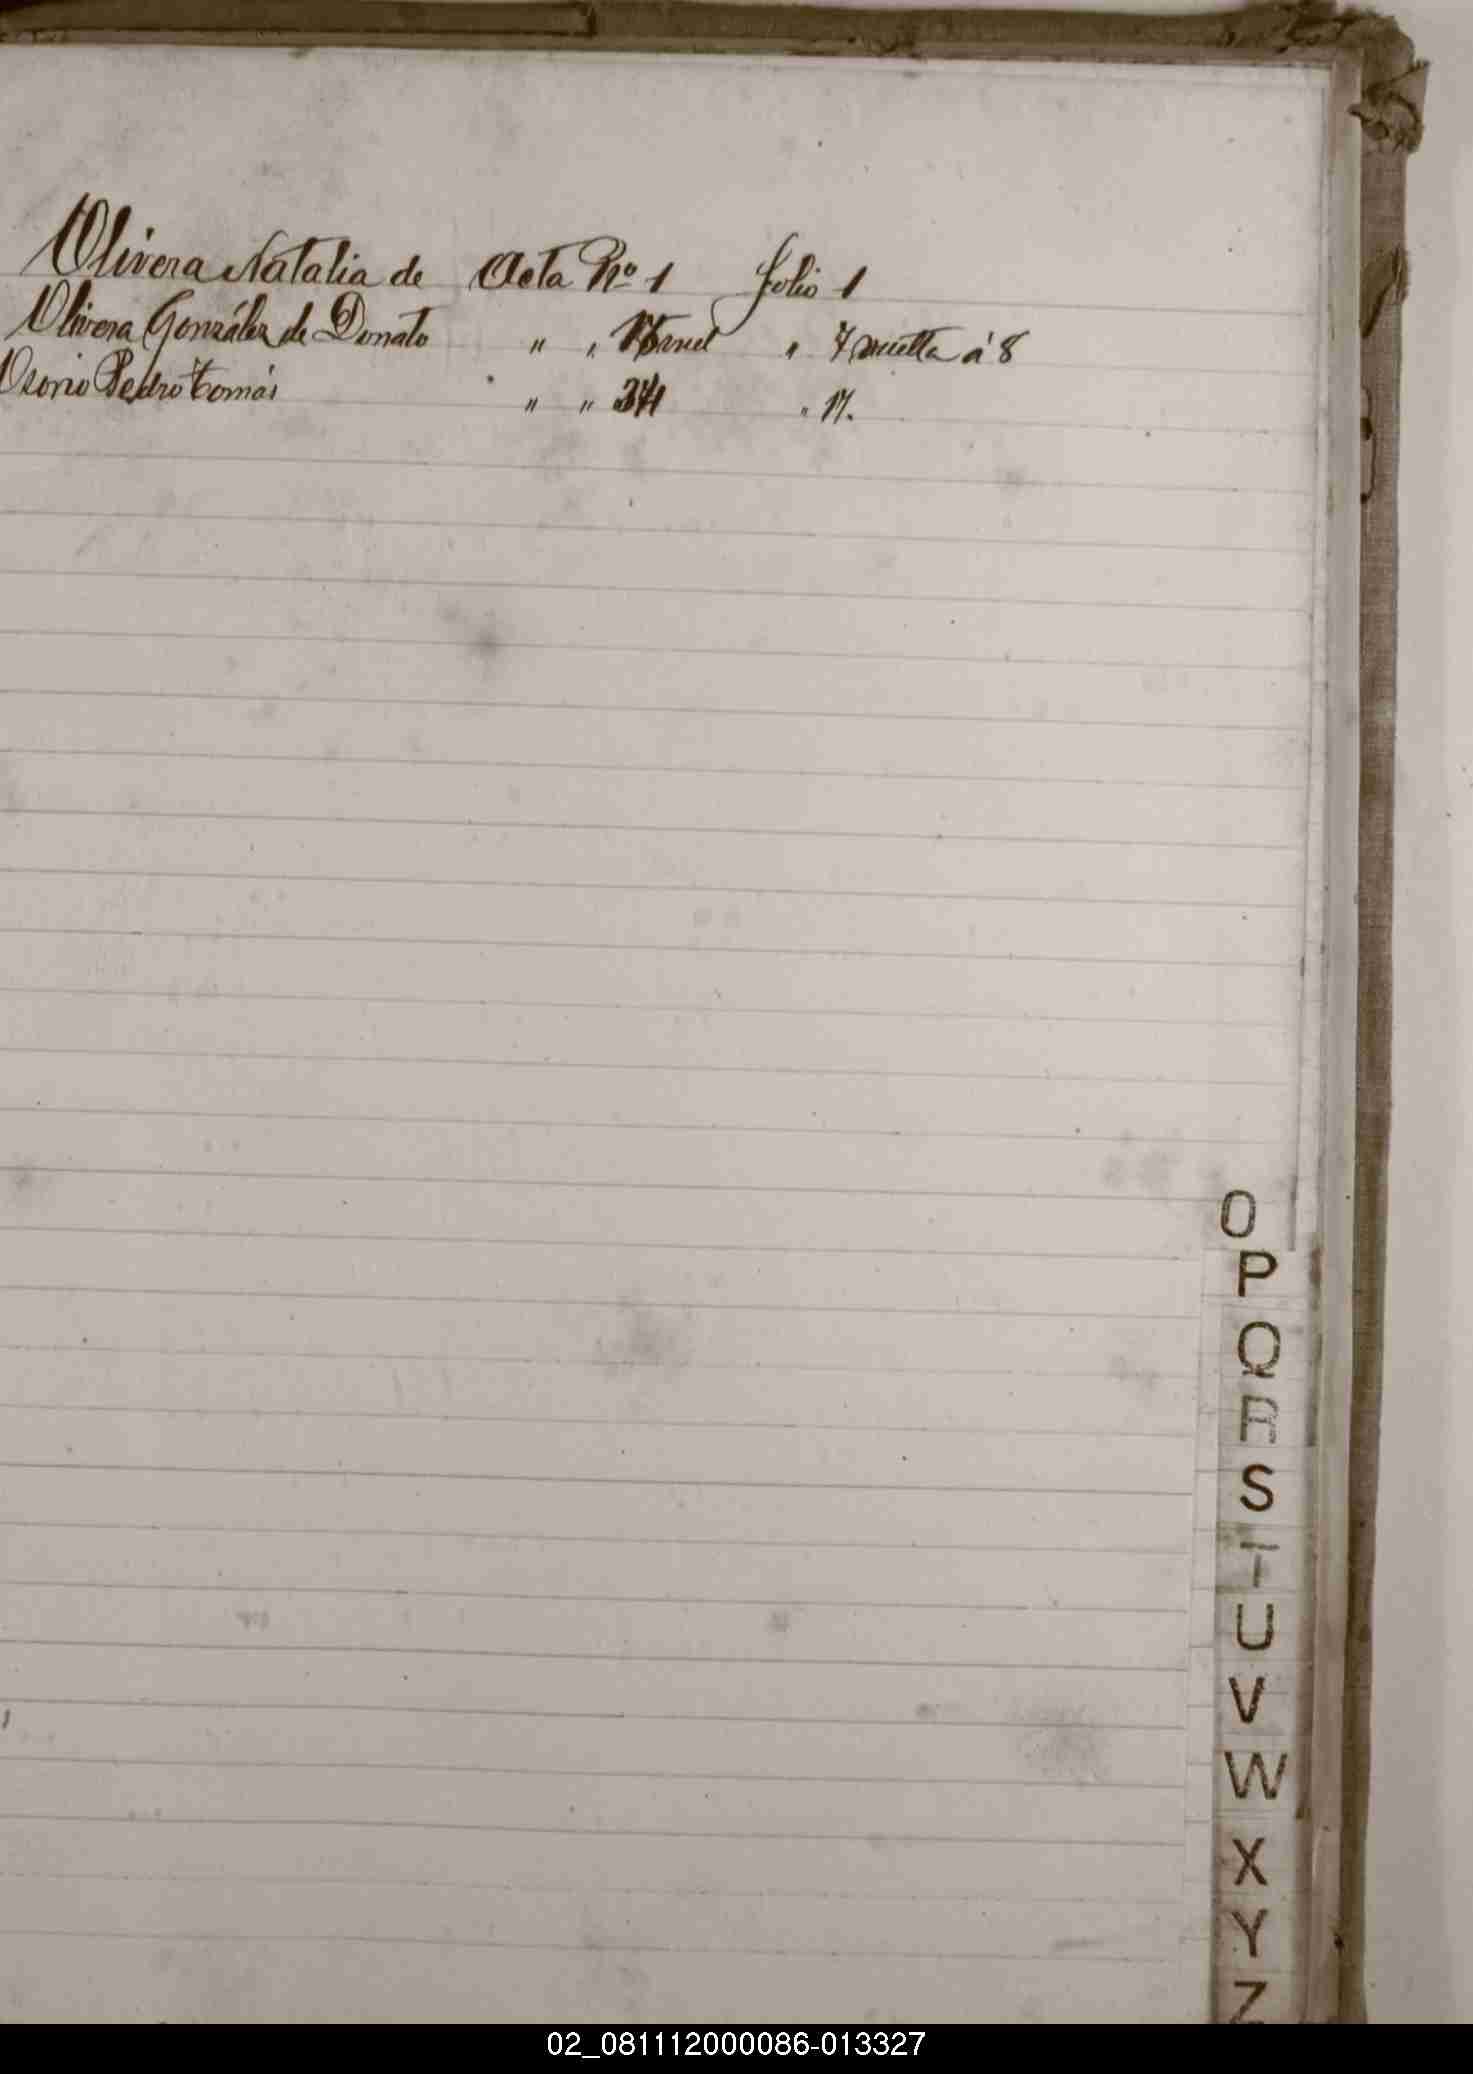 Olivera Natalia de Acta Nº 1 folio 1
Olivera González de Donato " " " 7 vuelta á 8
Osorio Pedro tomás " " 34 " 17.
O
P
Q
R
S
T
U
V
W
X
Y
Z
02_081112000086-013327